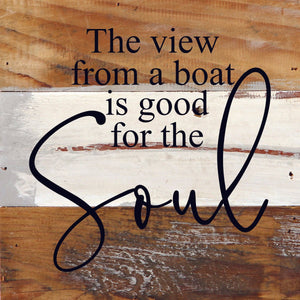 The view
from a boat
is good
for the
Soul